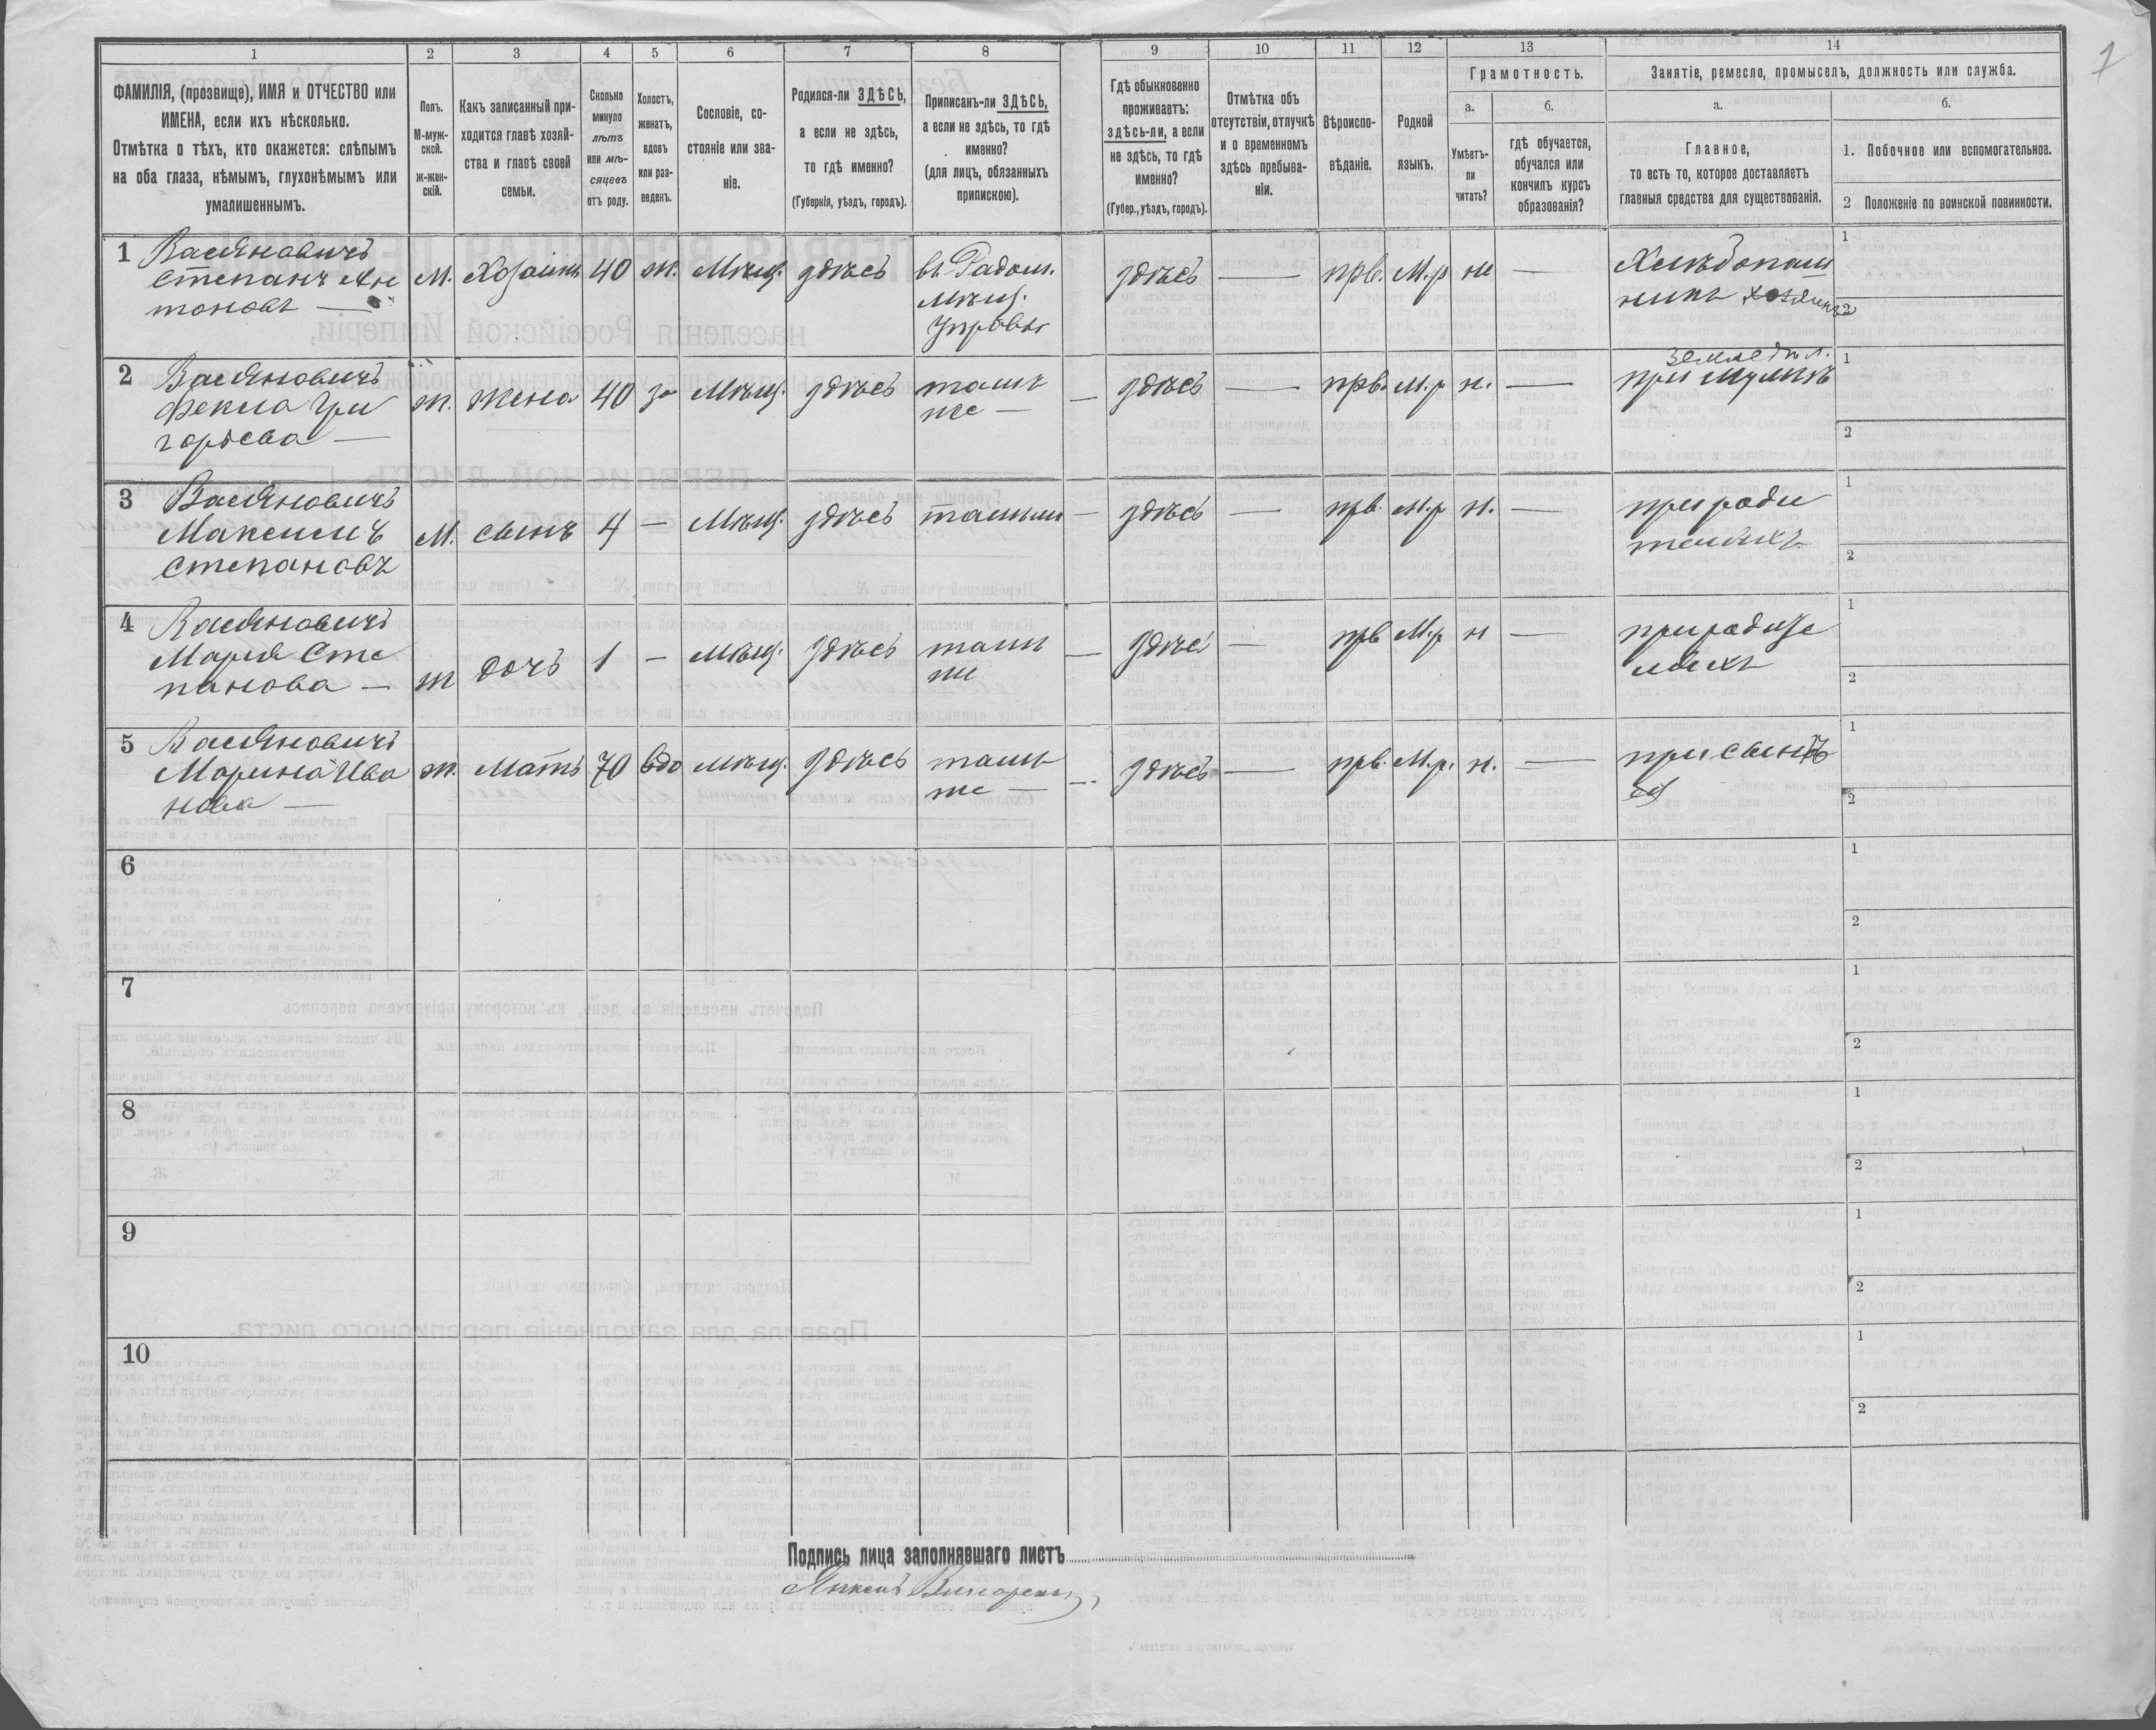 7
1 2 3 4 5 6 7 8 9 10 11 12 13 14
ФАМИЛІЯ, (прозвище), ИМЯ и ОТЧЕСТВО или
ИМЕНА, если ихъ нѣсколько.
Отмѣтка о тѣхъ, кто окажется: слѣпымъ
на оба глаза, нѣмымъ, глухонѣмымъ или
умалишеннымъ.
Полъ.
М-муж-
ской.
ж-жен-
скій.
Какъ записанный при-
ходится главѣ хозяй-
ства и главѣ своей
семьи.
Сколько
минуло
лѣтъ
или мѣ-
сяцевъ
отъ роду.
Холостъ,
женатъ,
вдовъ
или раз-
веденъ.
Сословіе, со-
стояніе или зва-
ніе.
Родился-ли ЗДѢСЬ,
а если не здѣсь,
то гдѣ именно?
(Губернія, уѣздъ, городъ).
Приписанъ-ли ЗДѢСЬ,
а если не здѣсь, то гдѣ
именно?
(для лицъ, обязанныхъ
припискою).
Гдѣ обыкновенно
проживаетъ:
здѣсь-ли, а если
не здѣсь, то гдѣ
именно?
(Губер., уѣздъ, городъ).
Отмѣтка объ
отсутствіи, отлучкѣ
и о временномъ
здѣсь пребыва-
ніи.
Вѣроиспо-
вѣданіе.
Родной
языкъ.
Грамотность.
а.
Умѣетъ-
ли
читать?
б.
гдѣ обучается,
обучался или
кончилъ курсъ
образованія?
Занятіе, ремесло, промыселъ, должность или служба.
а.
Главное,
то есть то, которое доставляетъ
главныя средства для существованія.
б.
1. Побочное или вспомогательное.
2 Положеніе по воинской повинности.
1 Васяновичъ
Степанъ Ан
тоновъ —
М. Хозяинъ 40 ж. Мѣщ. здѣсь
въ Радом.
Мѣщ.
Управы
здѣсь — прв. М.р не —
Хлѣбопаш
никъ хозяинъ
1
2
2 Васяновичъ
Фекла Гри
горьева —
ж. жена 40 за Мѣщ. здѣсь
тамъ
же —
— здѣсь — прв. М.р н. —
земледѣл.
при мужѣ
1
2
3 Васяновичъ
Максимъ
Степановъ
М. сынъ 4 — Мѣщ. здѣсь
— здѣсь — прв. М.р н. —
при роди
теляхъ
1
2
4 Васяновичъ
Марія Сте
панова —
ж дочь 1 — мѣщ. здѣсь
тамъ
же
— здѣсь — прв М.р н —
при роди
теляхъ
1
2
5 Васяновичъ
Марина Ива
нова —
ж. Мать 70 вдо мѣщ. здѣсь
тамъ
же —
— здѣсь — прв. М.р. н. —
при сынѣ
1
2
6
1
2
7
1
2
8
1
2
9
1
2
10
1
2
Подпись лица заполнявшаго листъ